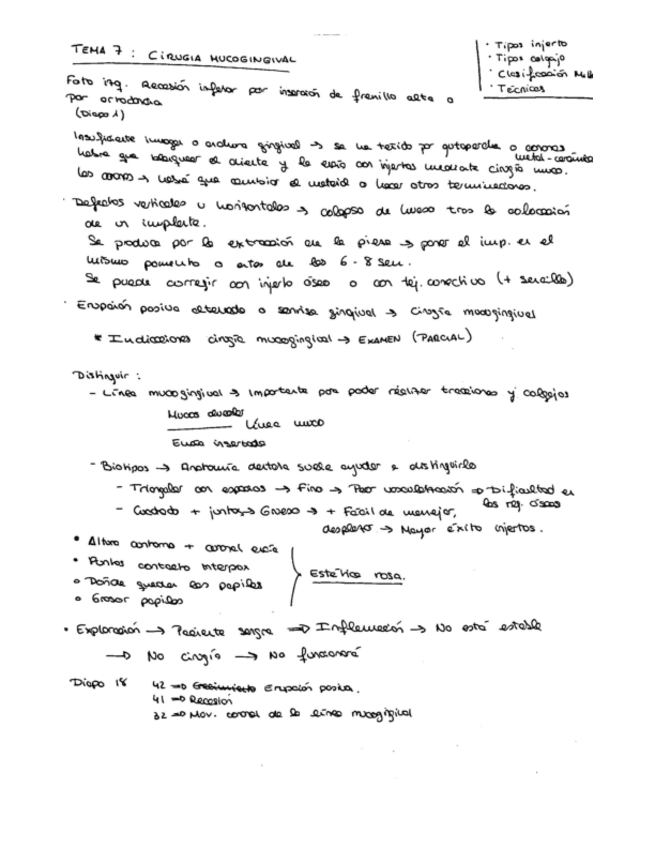 TEMA 7 : CIRUGIA MUCOGINGIVAL
· Tipos injerto
· Tipos colgajo
· Clasificación Mill
· Técnicas
Foto izq. Recesión inferior por inserción de frenillo alta o
por ortodoncia
(Diapo 1)
Insuficiente o anchura gingival → se ha teñido por gutapercha o coronas
metal-cerámica
habrá que blanquear el diente y la encía con injertos mediante cirugía muco.
Las coronas → habrá que cambiar el material o hacer otras terminaciones.
· Defectos verticales u horizontales → colapso de hueso tras la colocación
de un implante.
Se produce por la extracción de la pieza → poner el imp. en el
mismo momento o antes de las 6 - 8 sem.
Se puede corregir con injerto óseo o con tej. conectivo (+ sencillo)
· Erupción pasiva alterada o sonrisa gingival → Cirugía mucogingival
* Indicaciones cirugía mucogingival → EXAMEN (PARCIAL)
Distinguir :
- Línea mucogingival → Importante para poder realizar tracciones y colgajos
Mucosa alveolar
Línea muco
Encía insertada
- Biotipos → Anatomía dentaria suele ayudar a distinguirlo
- Triangular con espacios → Fino → Peor vascularización ⇒ Dificultad en
las reg. óseas
- Cuadrado + juntos → Grueso → + Fácil de manejar,
despegar → Mayor éxito injertos.
• Altura contorno + coronal encía
• Puntos contacto interprox
• Dónde quedan las papilas
• Grosor papilas
Estética rosa.
• Exploración → Paciente sangra ⇒ Inflamación → No está estable
→ No cirugía → No funcionará
Diapo 18
42 ⇒ Erupción pasiva.
41 ⇒ Recesión
32 ⇒ Mov. coronal de la línea mucogingival